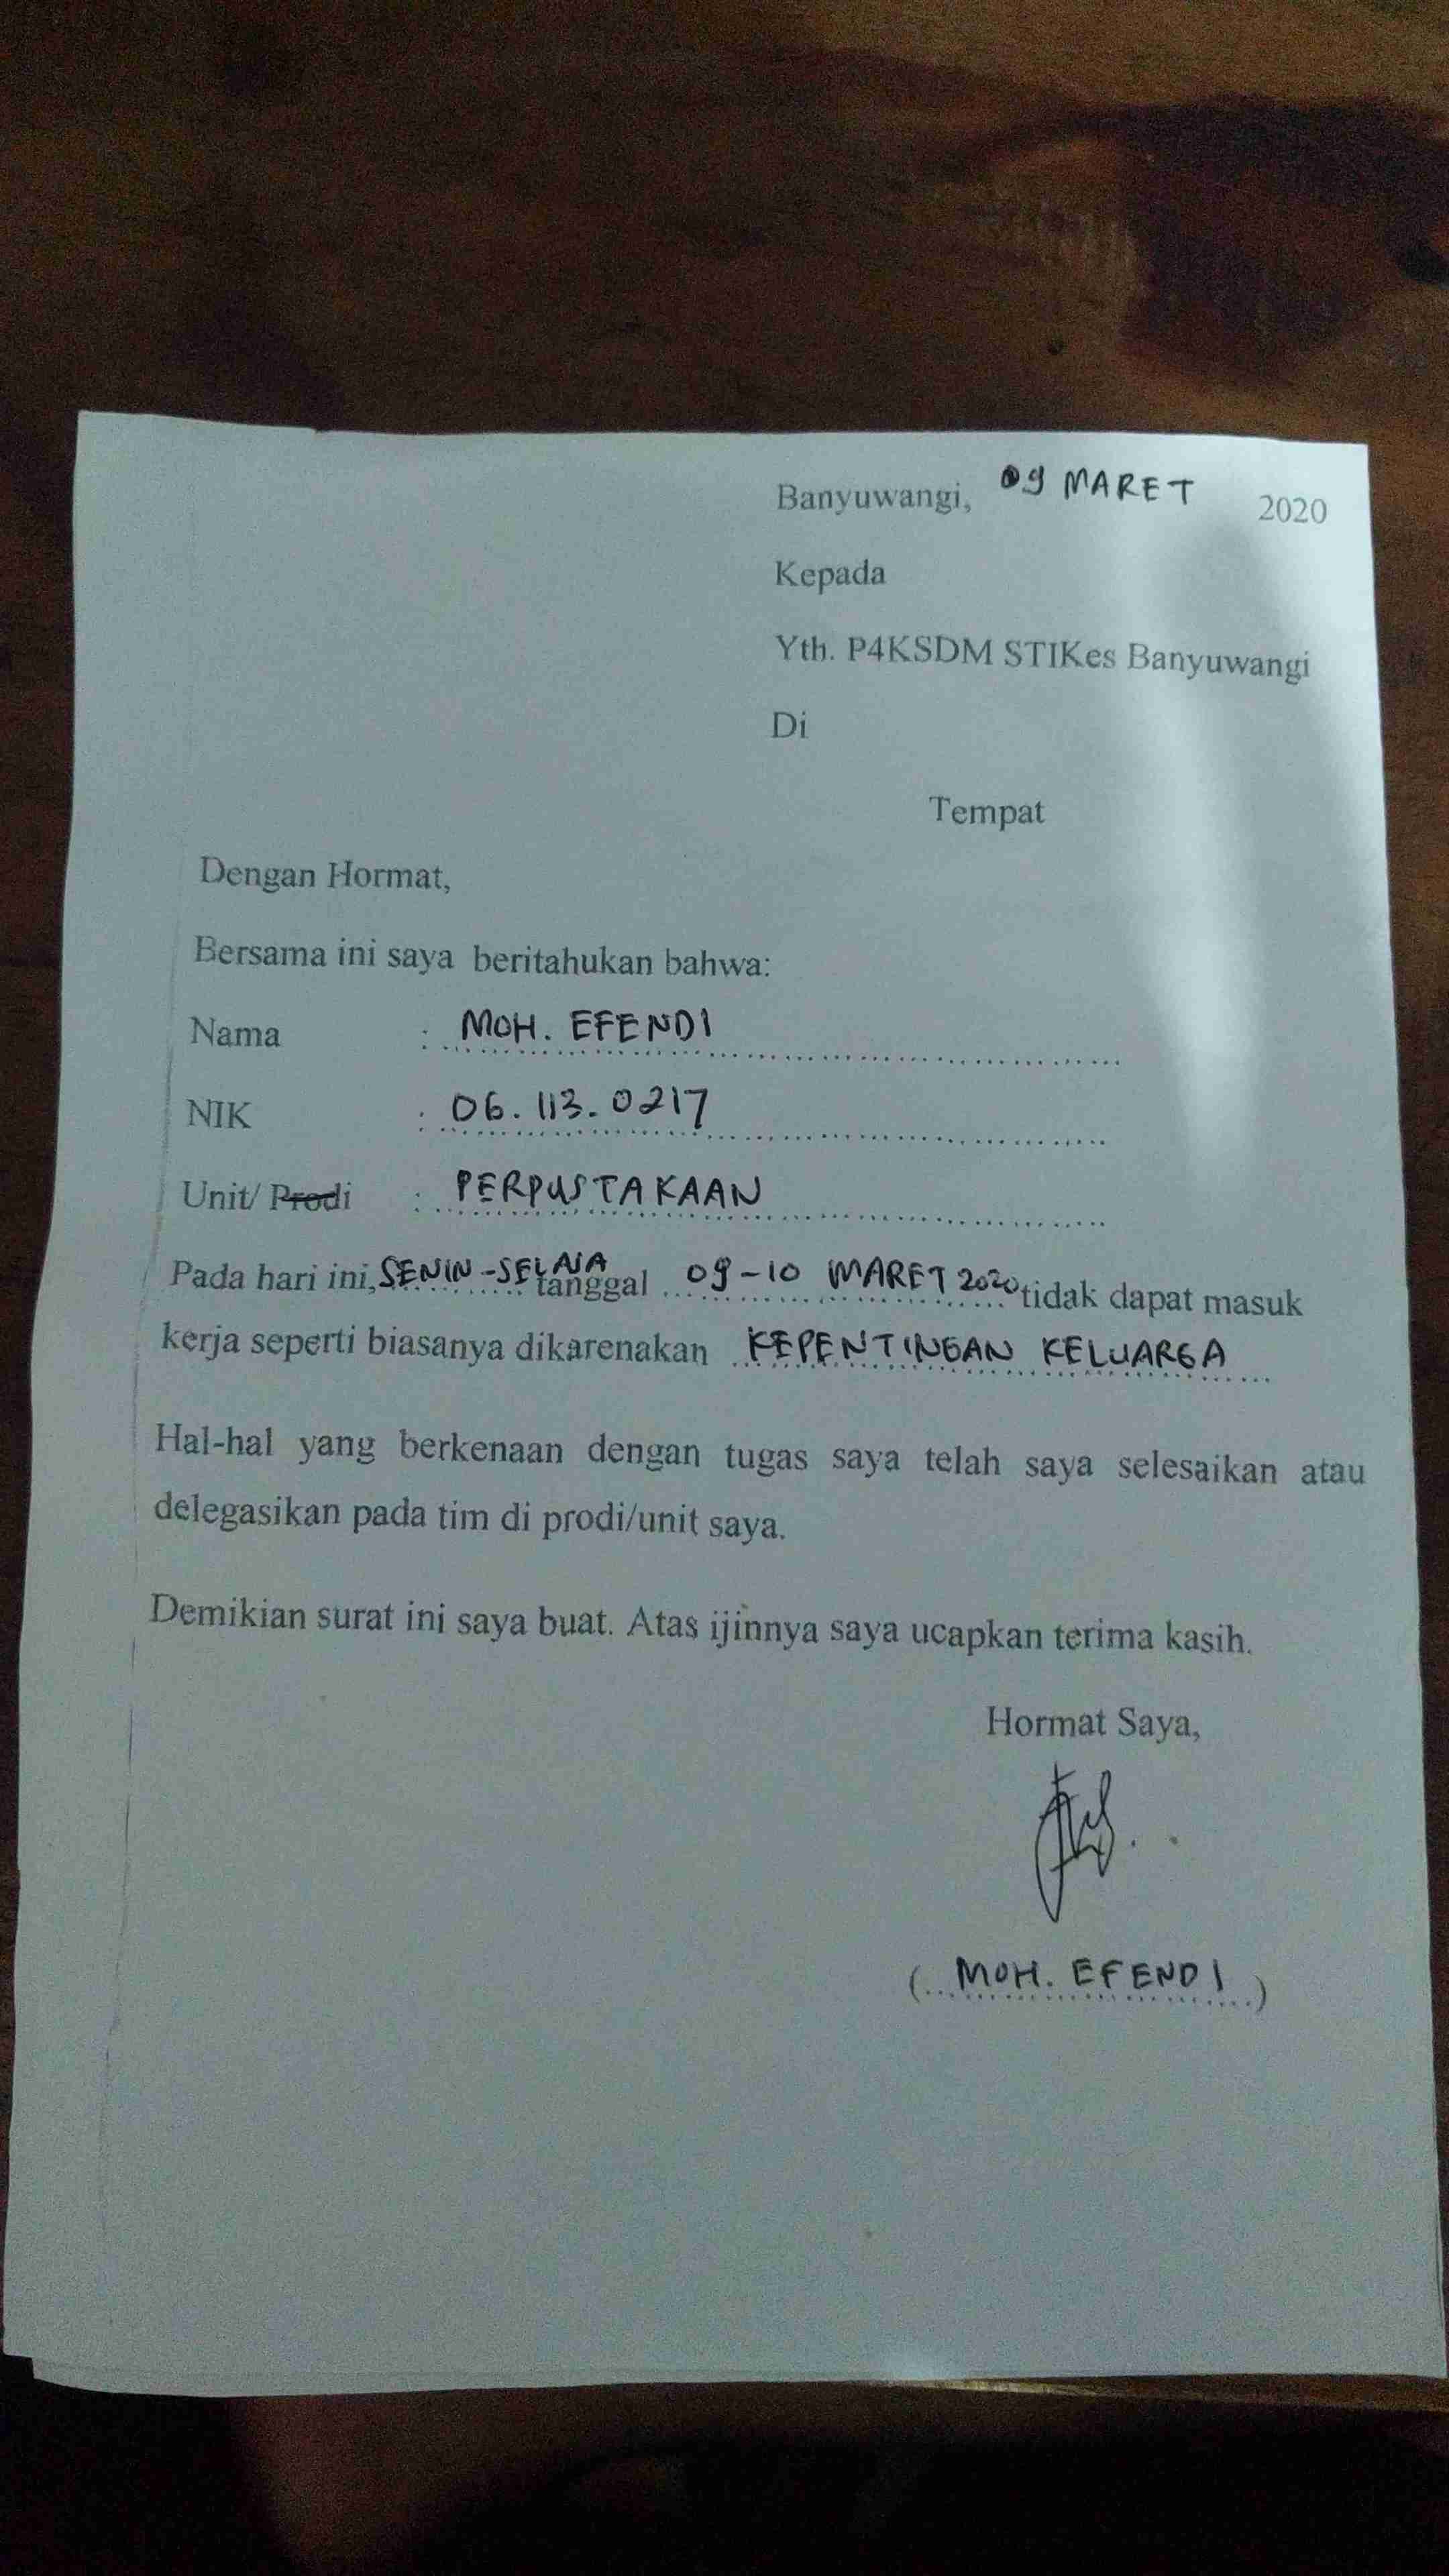 Banyuwangi, 09 MARET 2020
Kepada
Yth. P4KSDM STIKes Banyuwangi
Di
Tempat
Dengan Hormat,
Bersama ini saya beritahukan bahwa:
Nama : MOH. EFENDI
NIK : 06.113.0217
Unit/ Prodi : PERPUSTAKAAN
Pada hari ini, SENIN - SELASA tanggal 09-10 MARET 2020 tidak dapat masuk
kerja seperti biasanya dikarenakan KEPENTINGAN KELUARGA
Hal-hal yang berkenaan dengan tugas saya telah saya selesaikan atau
delegasikan pada tim di prodi/unit saya.
Demikian surat ini saya buat. Atas ijinnya saya ucapkan terima kasih.
Hormat Saya,
(MOH. EFENDI)